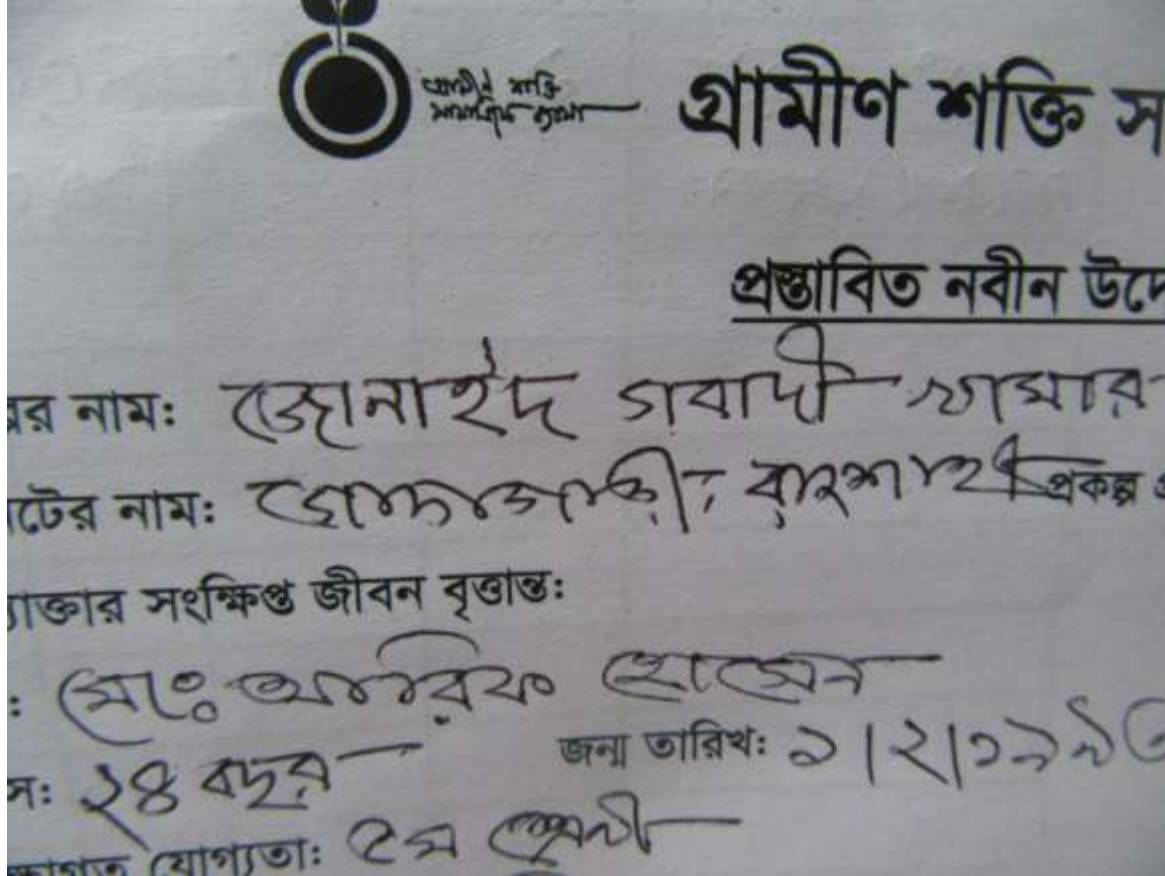 গ্রামীণ শক্তি
সামাজিক ব্যবসা
গ্রামীণ শক্তি স
প্রস্তাবিত নবীন উদ্যে
ের নাম: জোনাইদ গবাদী খামার
টের নাম: রাজশাহী প্রকল্প এ
্যোক্তার সংক্ষিপ্ত জীবন বৃত্তান্ত:
: মোঃ আরিফ হোসেন
স: ২৪ বছর জন্ম তারিখ: ১|২|১৯৯৩
ক্ষাগত যোগ্যতা: ৫ম শ্রেনী